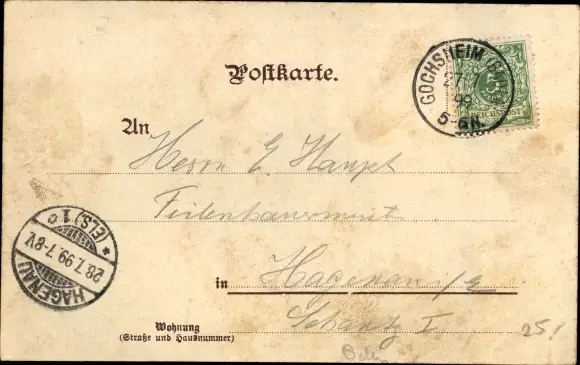 Postkarte.
GOCHSHEIM (BADEN)
27 7
99
5-6N.
REICHSPOST
An
Herrn E. Haupt
in Hagenau i/E
Schanz I
HAGENAU
28.7.99.7-8V.
* (ELS.) 1 c
Wohnung
(Straße und Hausnummer)
25!